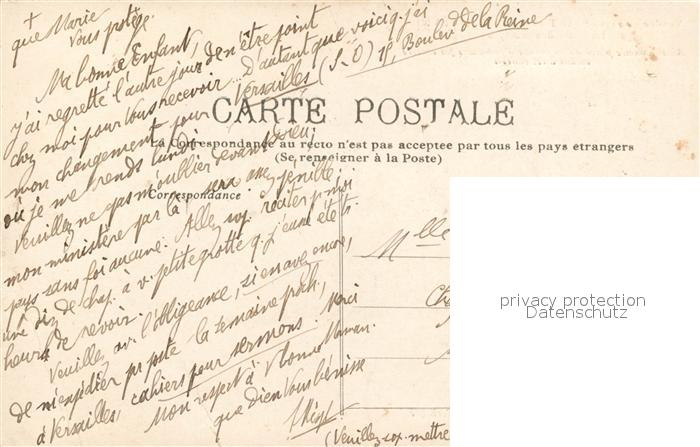 † que Marie
Vous protège.
Ma bonne Enfant,
j'ai regretté l'autre jour, de n'être point
chez moi pour Vous recevoir... D'autant que voici q. j'ai
mon changement pour Versailles (S-O) 18, Boulev d de la Reine
où je me rends lundi.
Veuillez ne pas m'oublier devant Dieu,
mon ministère par là sera assez pénible,
pays sans foi aucune. Allez, svp. réciter pr moi
une diz. de chap. à v. petite grotte q. j'eusse été si
heureux de revoir.
Veuillez av. l'obligeance, si en avez encore,
de m'expédier pr poste la semaine proch.,
à Versailles, cahiers pour sermons. Merci
Mon respect à Bonne Maman.
que Dieu Vous bénisse
(Veuillez svp. mettre
CARTE POSTALE
La Correspondance au recto n'est pas acceptee par tous les pays etrangers
(Se renseigner à la Poste)
Correspondance
Mlle
privacy protection
Datenschutz